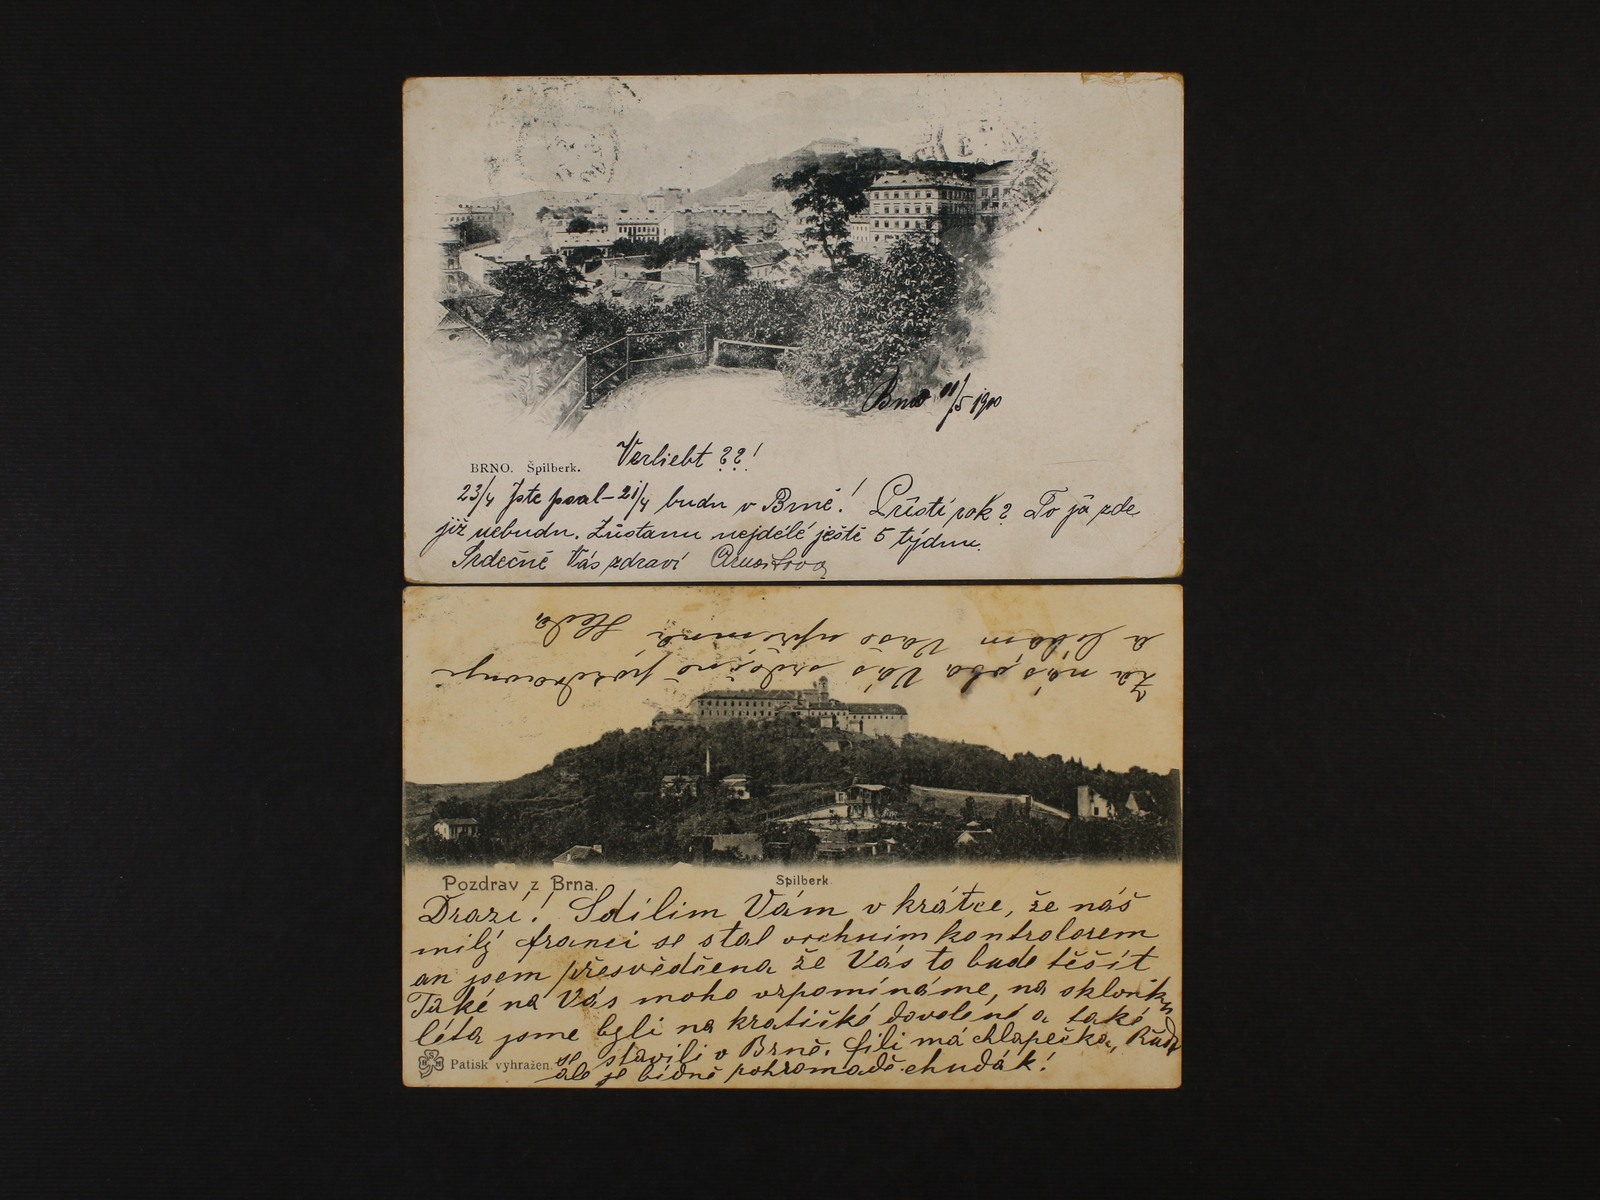 Brno 11/5 1900
Verliebt ??!
BRNO. Špilberk.
23/4 jste psal – 21/4 budu v Brně! Půstí rok? To já zde
již nebudu. Zůstanu nejdélé ještě 5 týdnu.
Srdečně Vás zdraví
Za nás oba Vás srdečně pozdravuje
a líbám Vaše upřimná Heda
Pozdrav z Brna.
Spilberk.
Drazí! Sdílim Vám v krátce, že náš
milý franci se stal vrchním kontrolorem
an jsem přesvědčena že Vás to bude těšit
Také na Vás moho vzpomínáme, na sklonku
léta jsme byli na kratičké dovolené a také
se stavili v Brně. fili má chlapečka, Rudu
ale je bídně pohromadě chudák!
Patisk vyhražen.